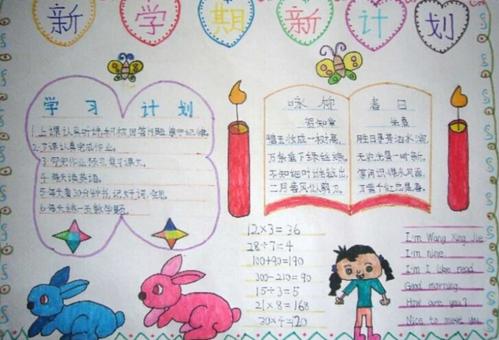 新学期新计划
学习计划
2.下课认真完成作业。
4.每天练英语。
6.每天练一页数学题。
咏柳
贺知章
碧玉妆成一树高,
万条垂下绿丝绦。
不知细叶谁裁出,
二月春风似剪刀。
春日
朱熹
胜日寻芳泗水滨,
无边光景一时新。
等闲识得东风面,
万紫千红总是春。
12×3=36
28÷7=4
100+90=190
300-210=90
15÷3=5
21×8=168
30×4=120
I'm Wang Xing Jie
I'm nine.
I'm I like read.
Good morning.
How are you?
Nice to meet you.